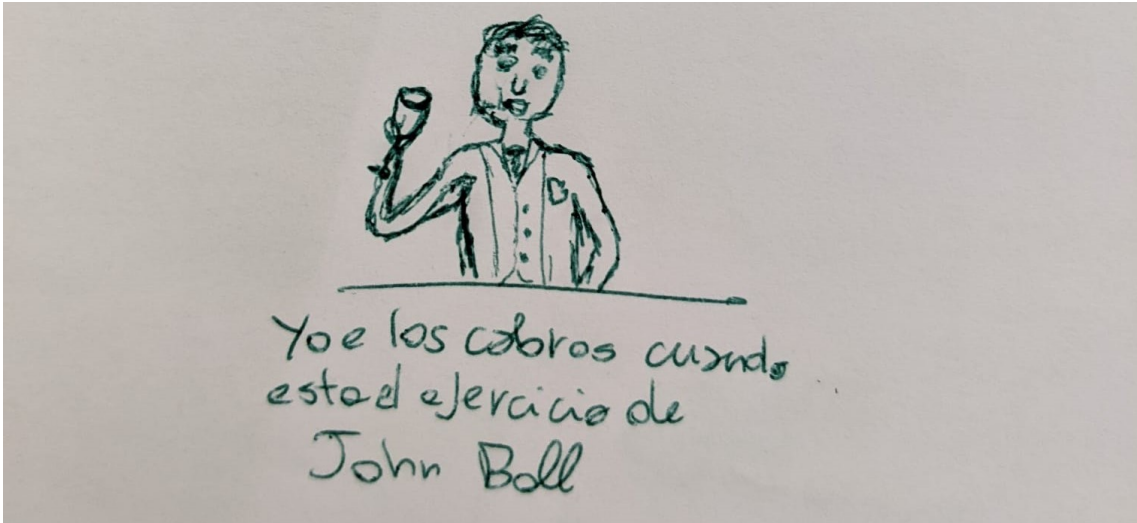 Yo e los cobros cuando
esta el ejercicio de
John Boll